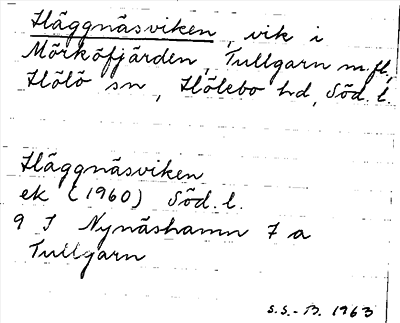 Häggnäsviken, vik i
Mörköfjärden, Tullgarn m.fl.,
Hölö sn, Hölebo hd, Söd. l.
Häggnäsviken
ek (1960) Söd. l.
9 I Nynäshamn 7 a
Tullgarn
S.S.-B. 1963